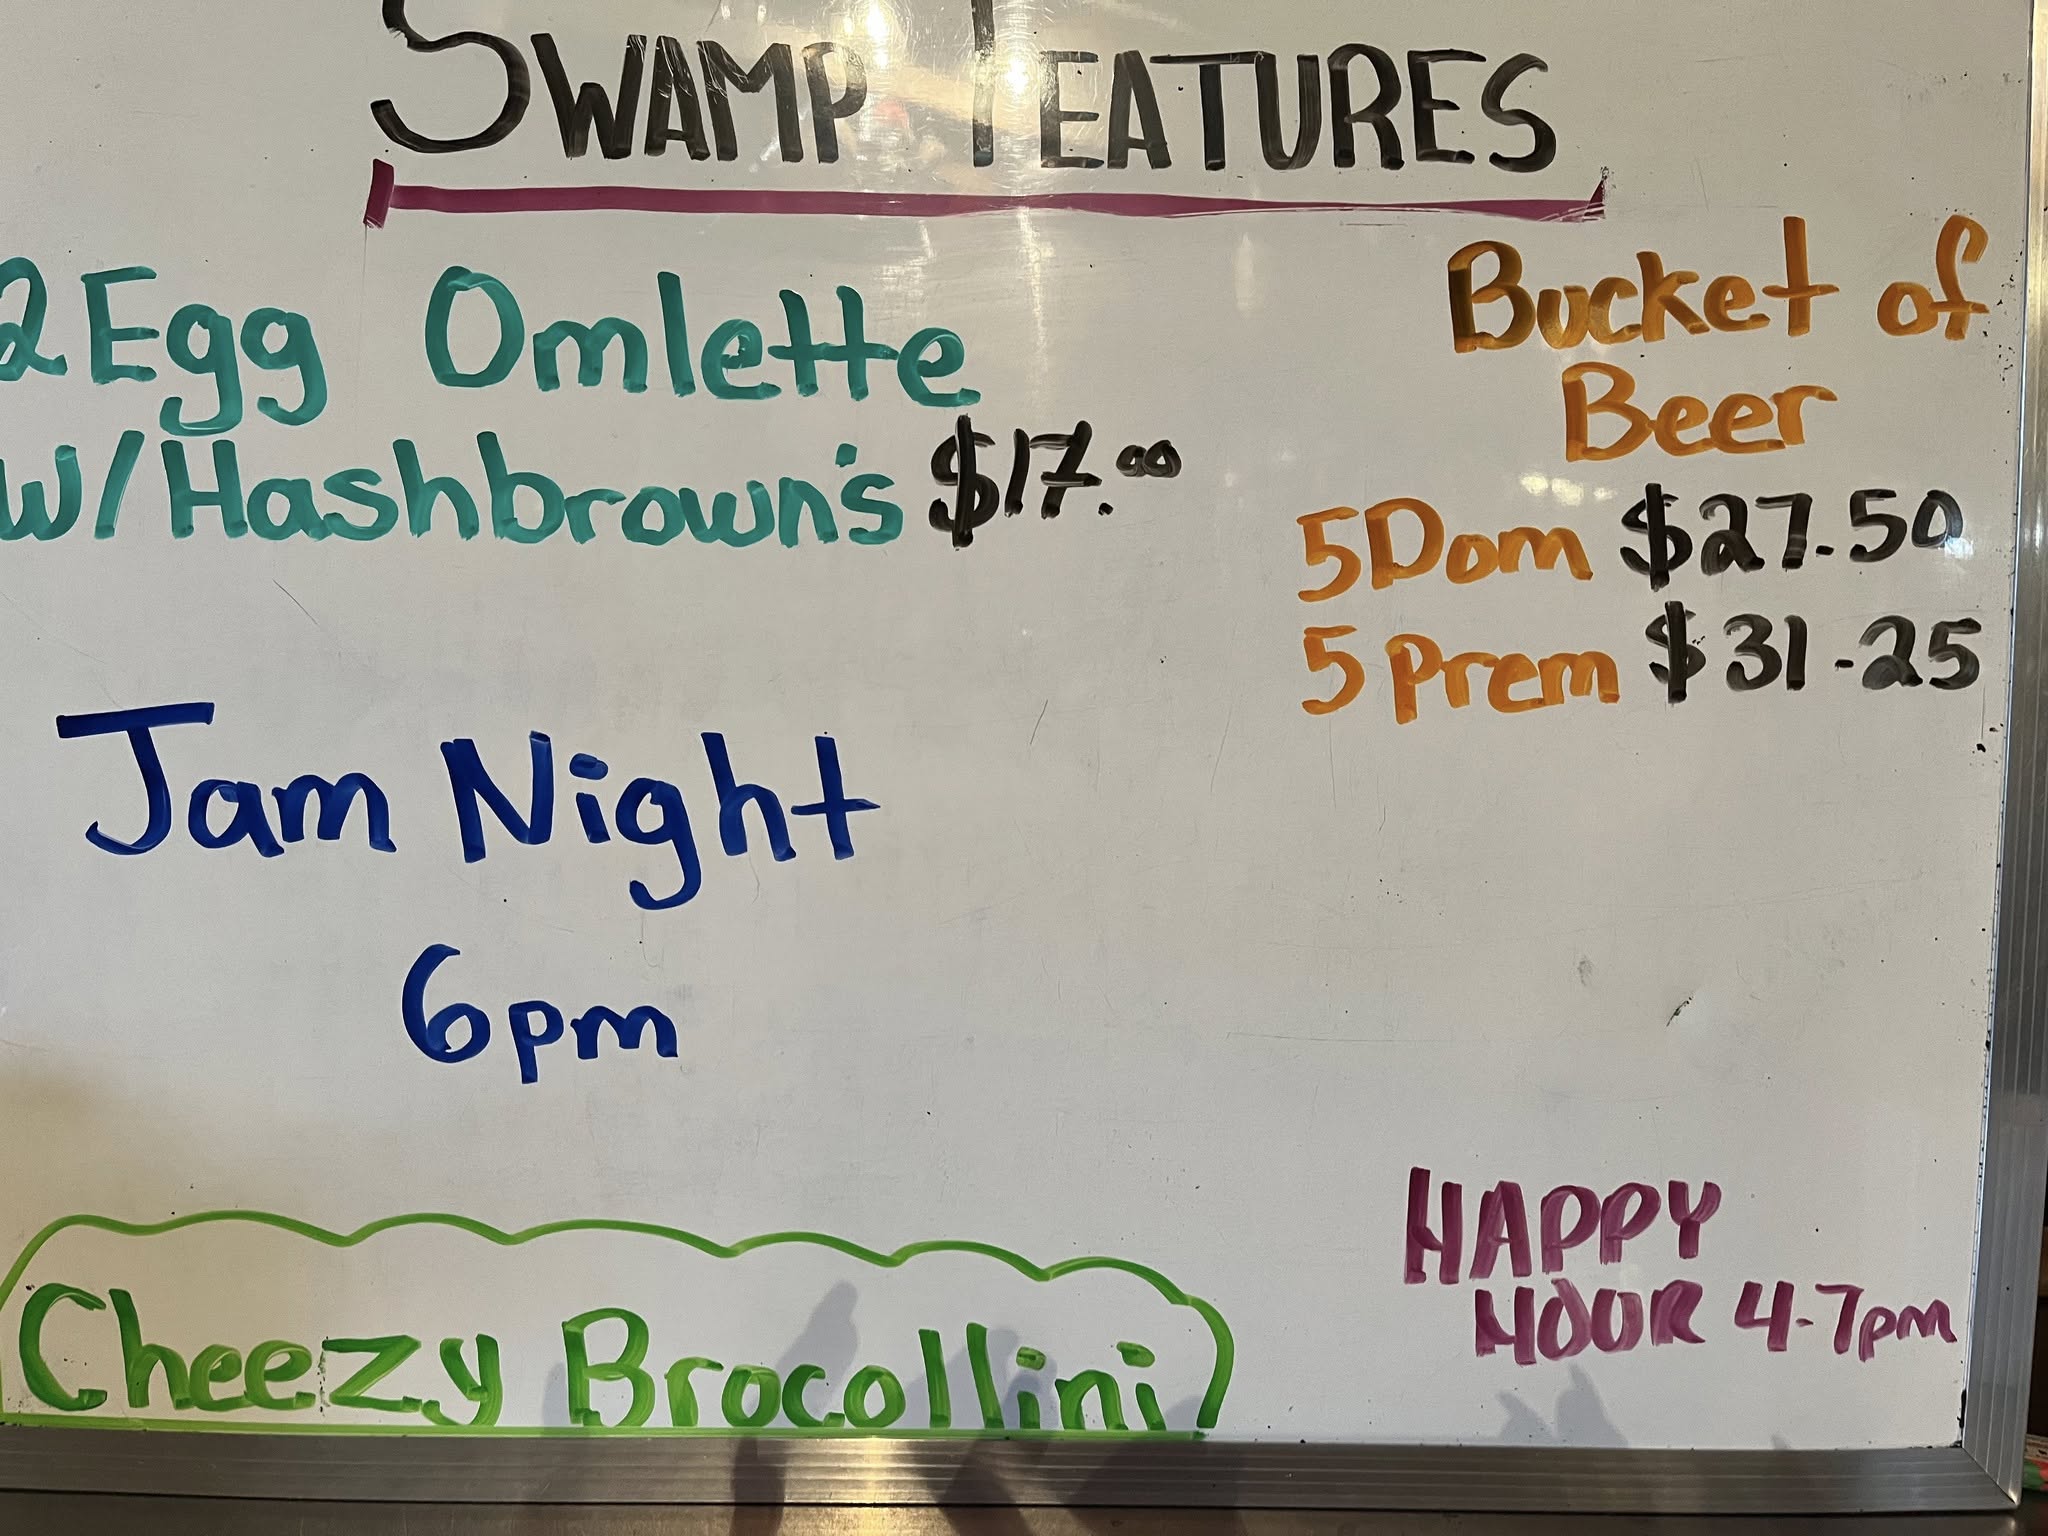 SWAMP FEATURES
2 Egg Omlette
W/Hashbrown's $17.00
Bucket of
Beer
5 Dom $27.50
5 Prem $31.25
Jam Night
6pm
Cheezy Brocollini
HAPPY
HOUR 4-7pm